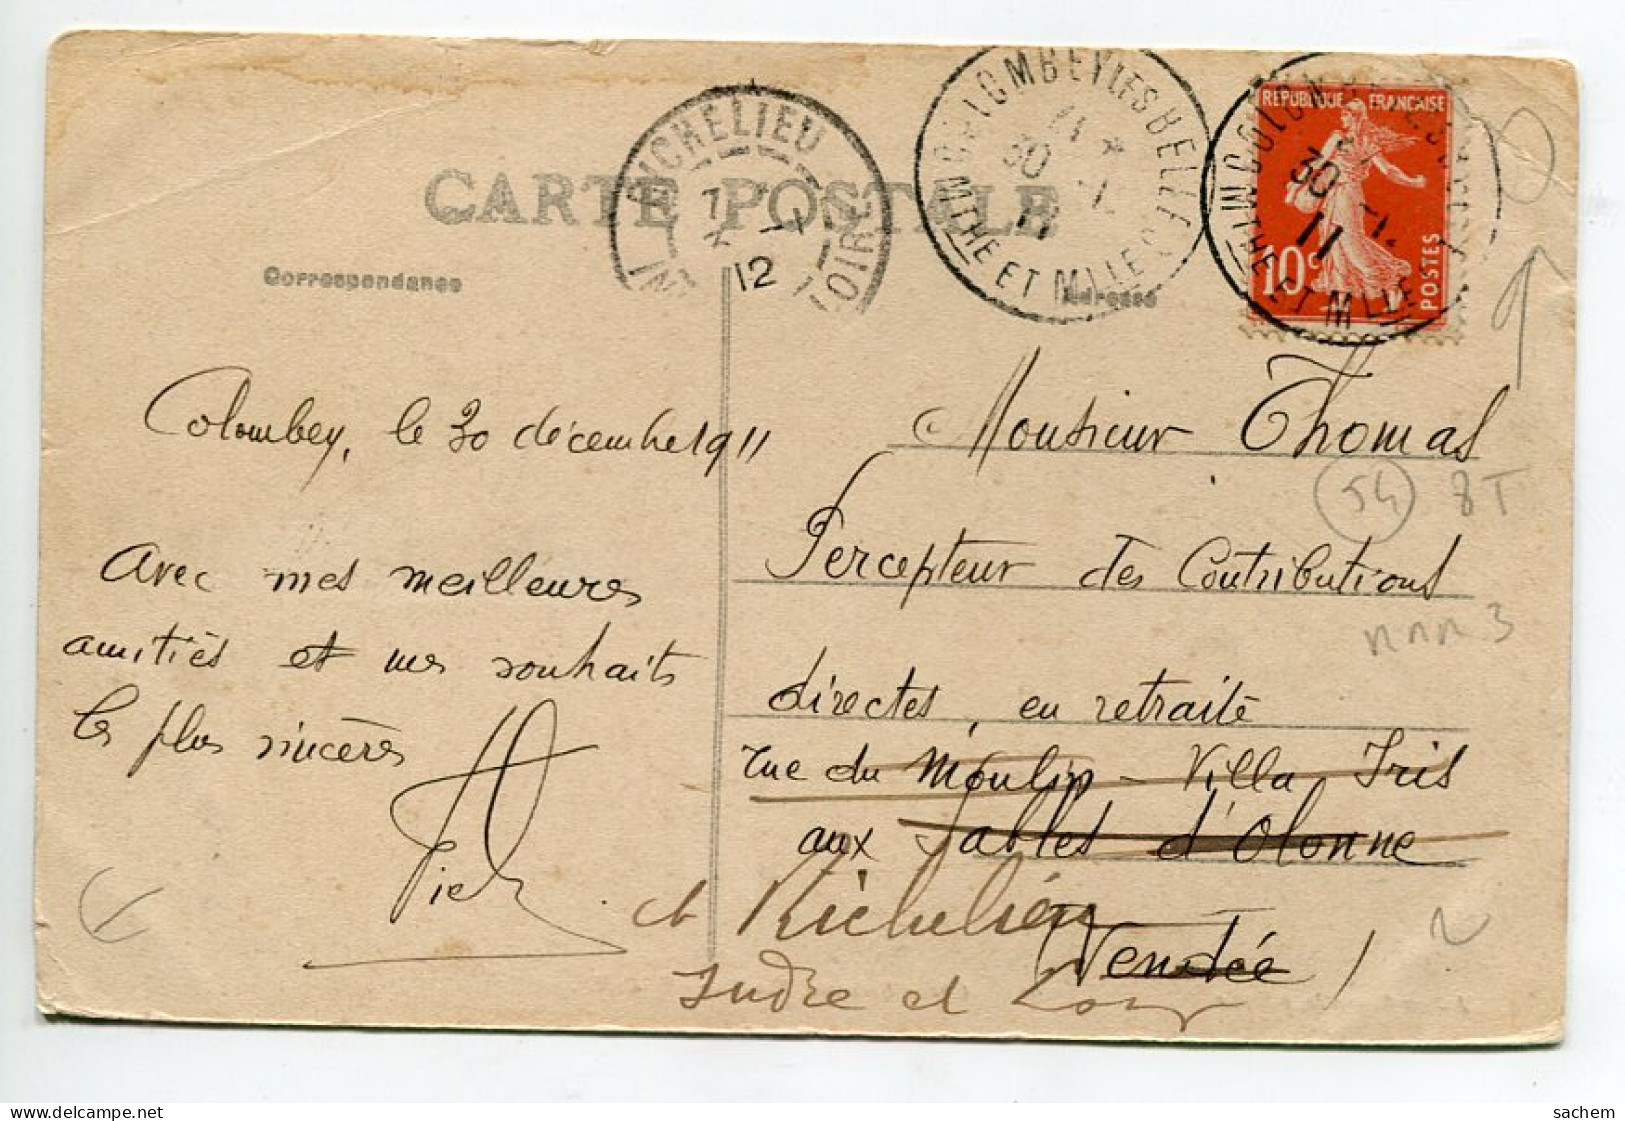 CARTE POSTALE
Correspondance
Adresse
RICHELIEU
12
INDRE LOIRE
COLOMBEY LES BELLES
30
11
MTHE ET MLLE
RÉPUBLIQUE FRANÇAISE
10c
POSTES
30
11
MTHE ET MLLE
Colombey, le 30 décembre 1911
Avec mes meilleures
amitiés et mes souhaits
les plus sincères
Monsieur Thomas
Percepteur des Contributions
directes, en retraite
rue du Moulin - Villa Iris
aux Sables d'Olonne
(Vendée)
à Richelieu
Indre et Loire
54 8T
3
sachem